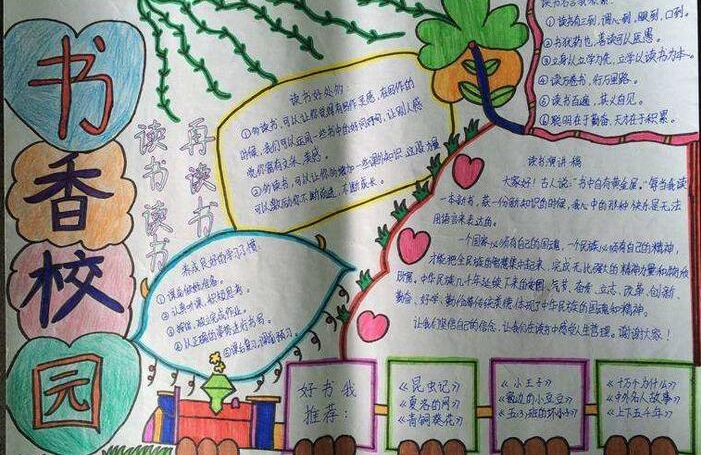 书香校园
读书读书
再读书
读书好处的：
①勤读书，可以让你觉得有写作灵感，在写作的
时候，我们可以运用一些书中的好词好句，让别人感
觉你富有文采、美感。
②勤读书，可以让你的增加一些课外知识
可以激励你不断前进，不断成长。
养成良好的学习习惯：
①课前做好准备。
②认真听课，积极思考。
③按时，独立完成作业。
④以正确的读写姿势进行书写。
①读书有三到，谓心到，眼到，口到。
②书犹药也，善读可以医愚。
③立身以立学为先，立学以读书为本。
④读万卷书，行万里路。
⑤读书百遍，其义自见。
⑥聪明在于勤奋，天才在于积累。
读书演讲稿
大家好！古人说：“书中自有黄金屋。”每当我读
一本新书，获一份新知识的时候，我心中的那种快乐是无法
用语言来表达的。
一个国家必须有自己的国魂，一个民族必须有自己的精神，
才能把全民族的智慧集中起来，完成无比强大的精神力量和物质
财富。中华民族几千年延续下来的爱国、气节、奋发、立志、改革、创新、
勤奋、好学、勤俭等传统美德，体现了中华民族的国魂和精神。
让我们坚信自己的信念，让我们在读书中感知人生哲理。谢谢大家！
好书我
推荐：
《昆虫记》
《夏洛的网》
《青铜葵花》
《小王子》
《窗边的小豆豆》
《五·3班的坏小子》
《十万个为什么》
《中外名人故事》
《上下五千年》